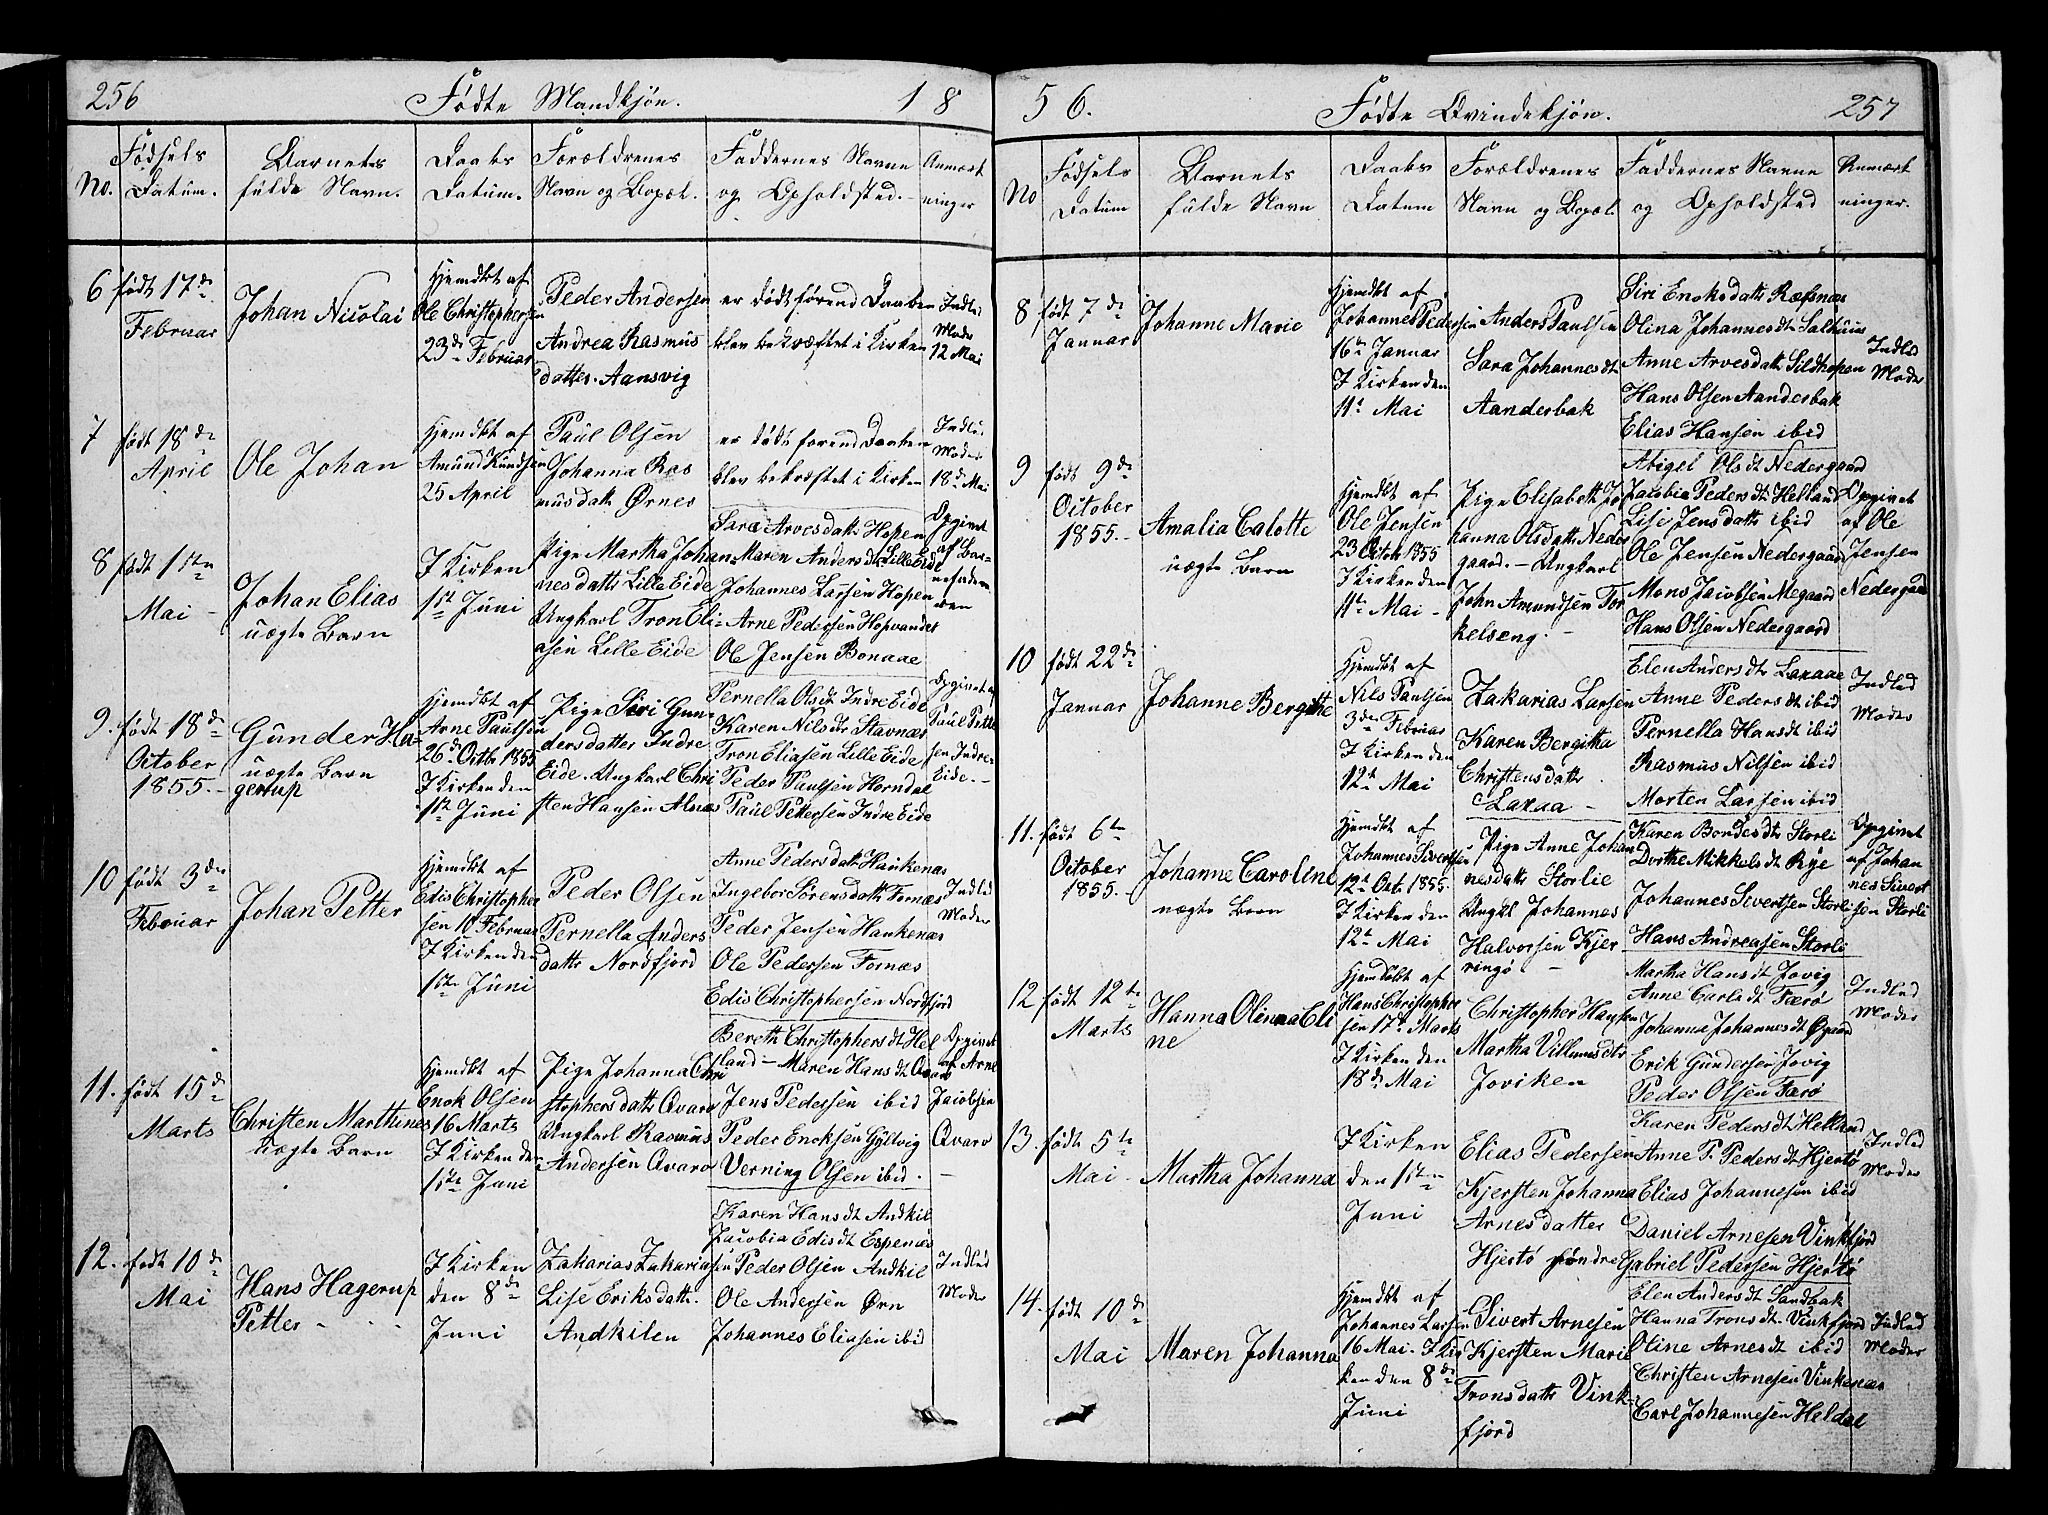 256
Fødte Mandkjøn.
1 8
No.
Fødsels
Datum.
Barnets
fulde Navn.
Daabs
Datum.
Forældrenes
Navn og Bopæl.
Faddernes Navne
og Opholdsted.
Anmærk
ninger
6 født 17de
Februar
Johan Nicolai
Hjemdbt af
Ole Christophersen
23de Februar
Peder Andersen
Andrea Rasmus
datter. Aansvig
er dødt førend Daaben
blev bekræftet i Kirken
Indled
Moder
12 Mai
7 født 18de
April
Ole Johan
Hjemdbt af
Amund Knudsen
25 April
Paul Olsen
Johanna Ras
musdatt Ørnes
er dødt førend Daaben
blev bekræftet i Kirken
Indled
Moder
18de Mai
8 født 1ste
Mai
Johan Elias
uægte Barn
I Kirken
1ste Juni
Pige Martha Johan
nesdattr Lille Eide
Ungkarl Tron Eli
asen Lille Eide
Sara Arvesdattr Hopen
Maren Andersdt Lille Eide
Johannes Larsen Hopen
Arne Pedersen Hopvandet
Ole Jensen Bonaae
Opgivet
af Bar
nefaderen
9. født 18de
October
1855.
Gunder Ha
uægte Barn
gerup
Hjemdbt af
Arne Paulsen
26de Octbr 1855
I Kirken den
1ste Juni
Pige Siri Gun
dersdatter Indre
Eide. Ungkarl Chri
sten Hansen Alnæs
Pernella Olsdt Indre Eide
Karen Nilsdtr Stavnæs
Tron Eliasen Lille Eide
Peder Paulsen Horndal
Paul Pettersen Indre Eide
Opgivet af
Paul Petter
sen Indre
Eide.
10 født 3die
Februar
Johan Petter
Hjemdbt af
Edis Christopher
sen 10 Februar
I Kirken den
1ste Juni
Peder Olsen
Pernella Anders
dattr Nordfjord
Anne Pedersdattr Haukenæs
Ingebor Sørensdattr Fornæs
Peder Jensen Haukenæs
Ole Pedersen Fornæs
Edis Christophersen Nordfjord
Indled
Moder
11. født 15de
Marts
Christen Marthines
uægte Barn
Hjemdbt af
Enok Olsen
16 Marts
I Kirken den
1ste Juni
Pige Johanna Chri
stophersdattr Qvarv
Ungkarl Rasmus
Andersen Qvarv
Bereth Christophersdt Hel
land - Maren Hansdt Qvarv
Jens Pedersen ibid
Peder Enoksen Gyltvig
Verning Olsen ibid.
Opgivet
af Arne
Jacobsen
Qvarv
12. født 10de
Mai
Hans Hagerup
Petter
I Kirken
den 8de
Juni
Zakarias Zakariasen
Lise Eriksdattr
Andkilen
Karen Hansdt Andkil
Jacobia Edisdt Espenæs
Peder Olsen Andkil
Ole Andersen Ørn
Johannes Eliasen ibid
Indled
Moder
5 6.
Fødte Qvindekjøn.
257
No
Fødsels
Datum
Barnets
fulde Navn
Daabs
Datum
Forældrenes
Navn og Bopæl
Faddernes Navne
og Opholdsted
Anmærk
ninger.
8 født 7de
Januar
Johanne Marie
Hjemdbt af
Johannes Pedersen
16te Januar
I Kirken den
11te Mai
Anders Paulsen
Sara Johannesdt
Aanderbak
Siri Enoksdattr Ræfsnæs
Olina Johannesdt Salhuus
Anne Arvesdattr Sildhopen
Hans Olsen Aanderbak
Elias Hansen ibid
Indled
Moder
9 født 9de
October
1855.
Amalia Calotte
uægte Barn
Hjemdbt af
Ole Jensen
23 Octbr 1855
I Kirken den
11te Mai
Pige Elisabett Jo
hanna Olsdattr Neder
gaard. - Ungkarl
John Amundsen Tor
kelseng.
Abigel Olsdt Nedergaard
Jacobia Pedersdt Helland
Lise Jensdattr ibid
Ole Jensen Nedergaard
Mons Jacobsen Megaard
Hans Olsen Nedergaard
Opgivet
af Ole
Jensen
Nedergaard
10 født 22de
Januar
Johanne Bergithe
Hjemdbt af
Nils Paulsen
3die Februar
I Kirken den
12te Mai
Zakarias Larsen
Karen Bergitha
Christensdattr
Laxaa
Elen Andersdt Laxaae
Anne Pedersdt ibid
Pernella Hansdt ibid
Rasmus Nilsen ibid
Morten Larsen ibid
Indled
Moder
11. født 6te
October
1855.
Johanne Caroline
uægte Barn
Hjemdbt af
Johannes Sivertsen
12te Oct. 1855
I Kirken den
12te Mai
Pige Anne Johan
nesdattr Storlie
Ungkl Johannes
Halvorsen Kjer
ringø
Karen Bondesdtr Storli
Dorthe Mikkelsdt Rye
Johannes Sivertsen Storli
Hans Andreasen Storli
Opgivet
af Johan
nes Sivert
sen Storli
12 født 12te
Marts
Hanna Olinna Eli
ne
Hjemdbt af
Hans Christopher
sen 17de Marts
I Kirken den
18de Mai
Christopher Hansen
Martha Villumsdtr
Joviken
Martha Hansdt Jovig
Anne Carlsdt Færø
Johanna Johannesdt Øgaard
Erik Gundersen Jovig
Peder Olsen Færø
Indled
Moder
13. født 5te
Mai
Martha Johanna
I Kirken
den 1ste
Juni
Elias Pedersen
Kjersten Johanna
Arnesdatter
Hjertø søndre
Karen Pedersdt Helland
Anne P. Pedersdt Hjertø
Elias Johannesen ibid
Daniel Arnesen Vinkfjord
Gabriel Pedersen Hjertø
Indled
Moder
14. født 10de
Mai
Maren Johanna
Hjemdbt af
Johannes Larsen
16 Mai. I Kir
ken den 8de
Juni
Sivert Arnesen
Kjersten Marie
Tronsdattr Vink
fjord
Elen Andersdt Sandbak
Hanna Tronsdt Vinkfjord
Oline Arnesdt ibid
Christen Arnesen Vinkenæs
Carl Johannesen Heldal
Indled
Moder